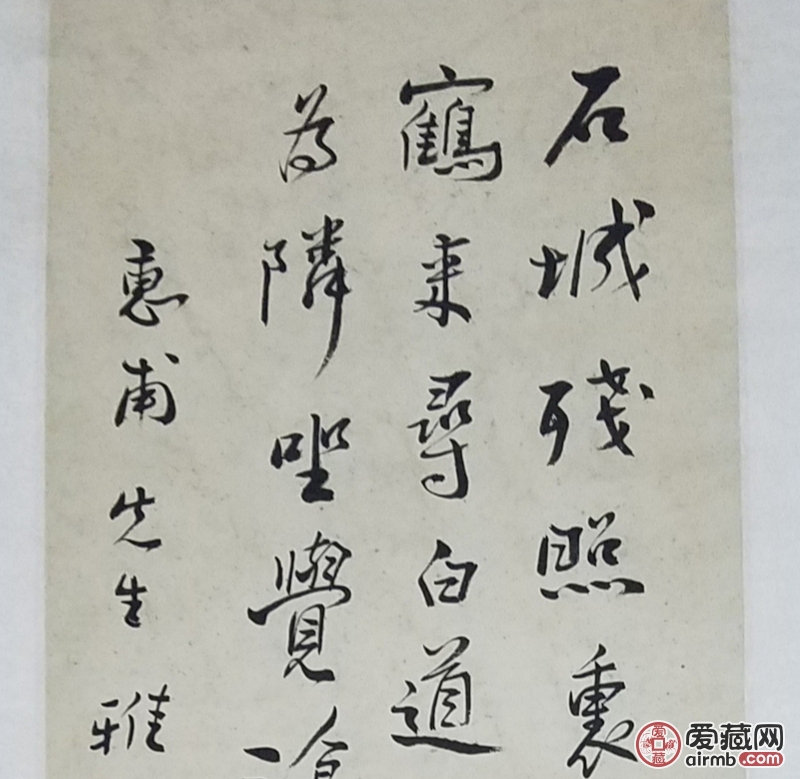 石城殘照裏
鶴來尋白道
為隣坐覺
惠甫先生雅
爱藏网
airmb.com